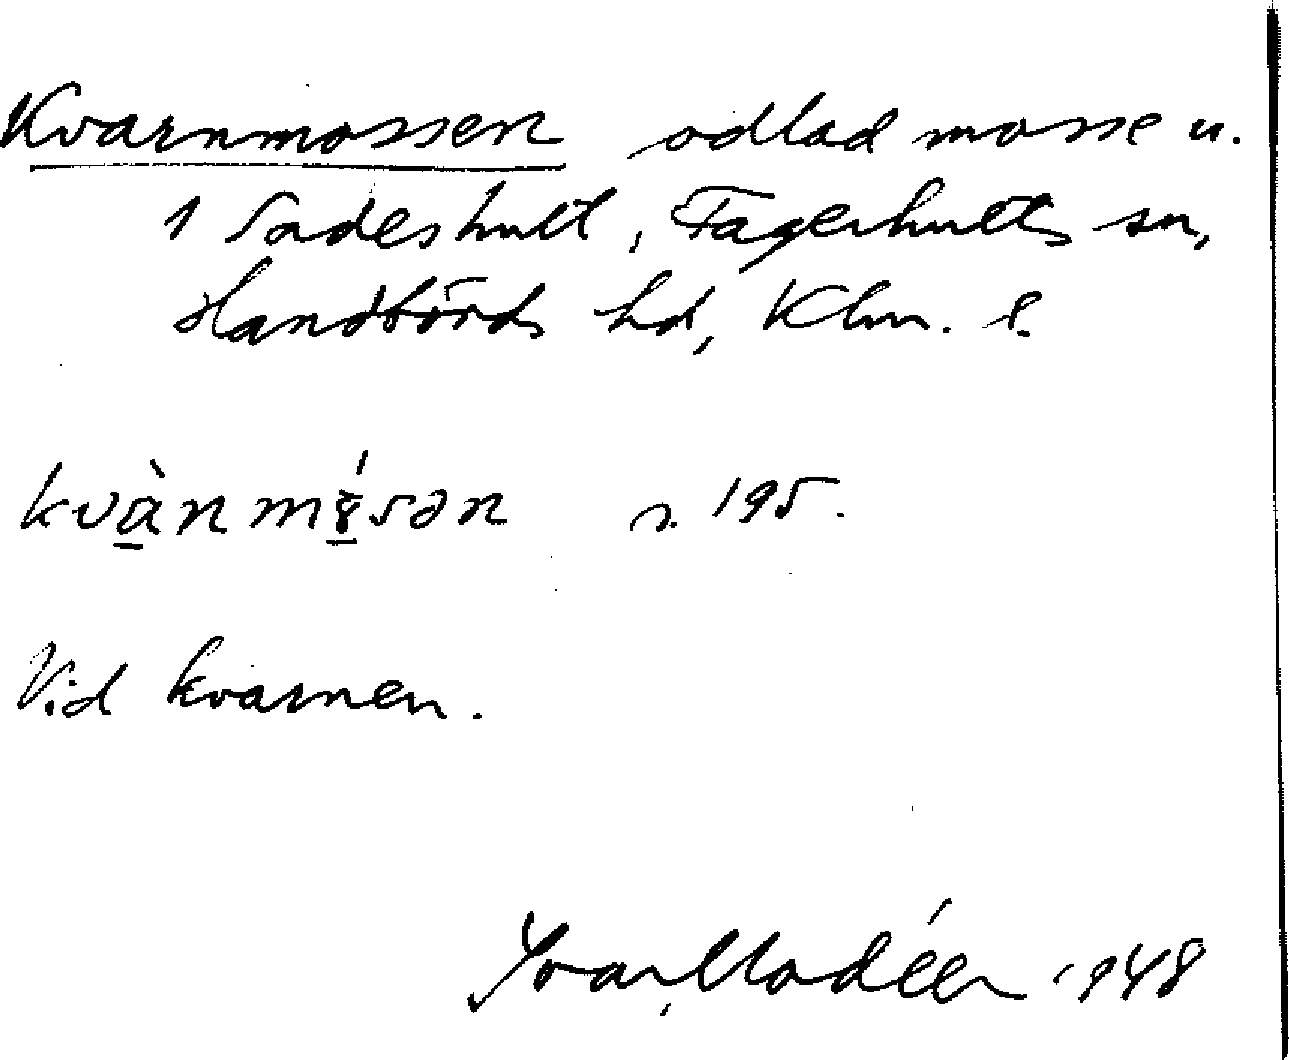 Kvarnmossen odlad mosse u.
1 Sadeshult, Fagerhults sn,
Handbörds hd, Klm. l.
kvànmósən s. 195.
Vid kvarnen.
Ivar Modéer 1948